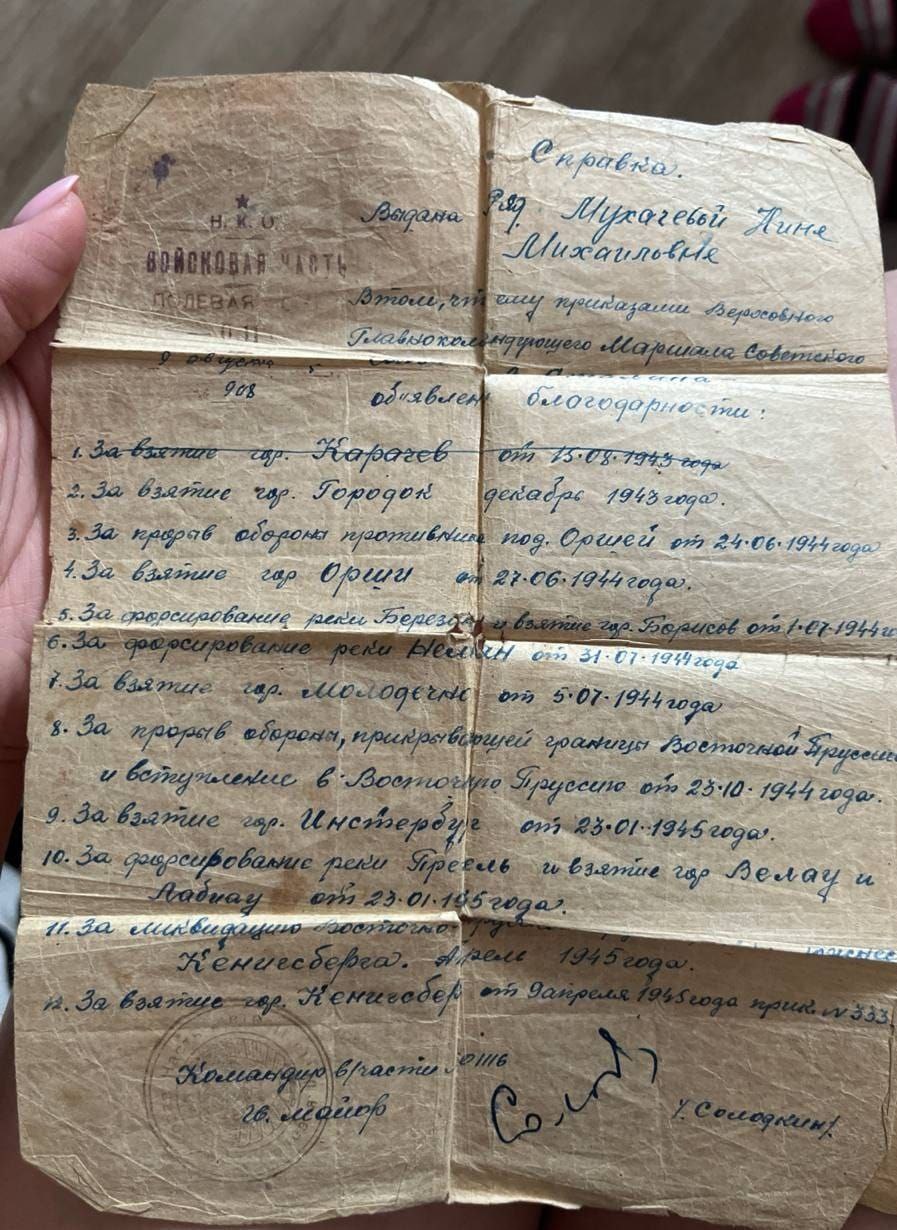 Справка.
Н.К.О.
Выдана Ряд. Мухачевой Нине
ВОЙСКОВАЯ ЧАСТЬ
Михаиловне
ПОЛЕВАЯ
В том, что ему приказами Верховного
Главнокомандующего Маршала Советского
9 августа
908
объявлен благодарности:
1. За взятие гор. Карачев от 15.08.1943 года
2. За взятие гор. Городок декабрь 1943 года.
3. За прорыв обороны противника под. Оршей от 24.06.1944 года
4. За взятие гор Орши от 27.06.1944 года.
5. За форсирование реки Березины и взятие гор. Борисов от 1.07.1944 г
6. За форсирование реки Неман от 31.07.1944 года
7. За взятие гор. Молодечно от 5.07.1944 года
8. За прорыв обороны, прикрывающей границы Восточной Пруссии
и вступление в Восточную Пруссию от 23.10.1944 года.
9. За взятие гор. Инстербург от 23.01.1945 года.
10. За форсирование реки Прегль и взятие гор Велау и
Лабиау от 23.01.195 года.
11. За ликвидацию Восточно
Кенигсберга. Апрель 1945 года.
12. За взятие гор. Кенигсбер от 9 апреля 1945 года прик. N 333
Командир в/части 50116
гв. майор /Солодкин/.